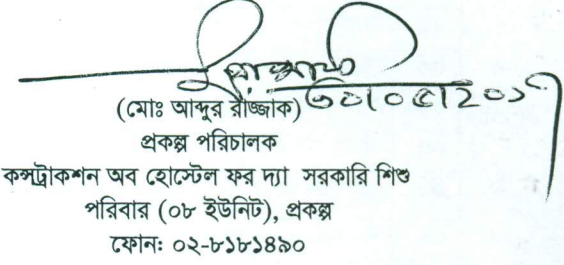 ৩০/০৫/২০১৭
(মোঃ আব্দুর রাজ্জাক)
প্রকল্প পরিচালক
কন্সট্রাকশন অব হোস্টেল ফর দ্যা সরকারি শিশু
পরিবার (০৮ ইউনিট), প্রকল্প
ফোন: ০২-৮১৮১৪৯০